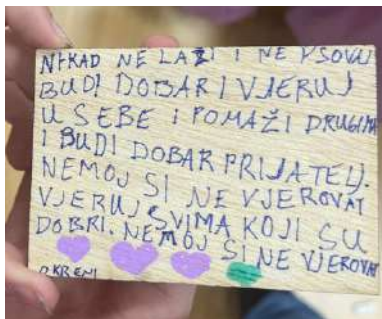 NIKAD NE LAŽI I NE PSOVAJ
BUDI DOBAR I VJERUJ
U SEBE I POMAŽI DRUGIMA
I BUDI DOBAR PRIJATELJ.
NEMOJ SI NE VJEROVAT
VJERUJ SVIMA KOJI SU
DOBRI. NEMOJ SI NE VJEROVAT
OKRENI